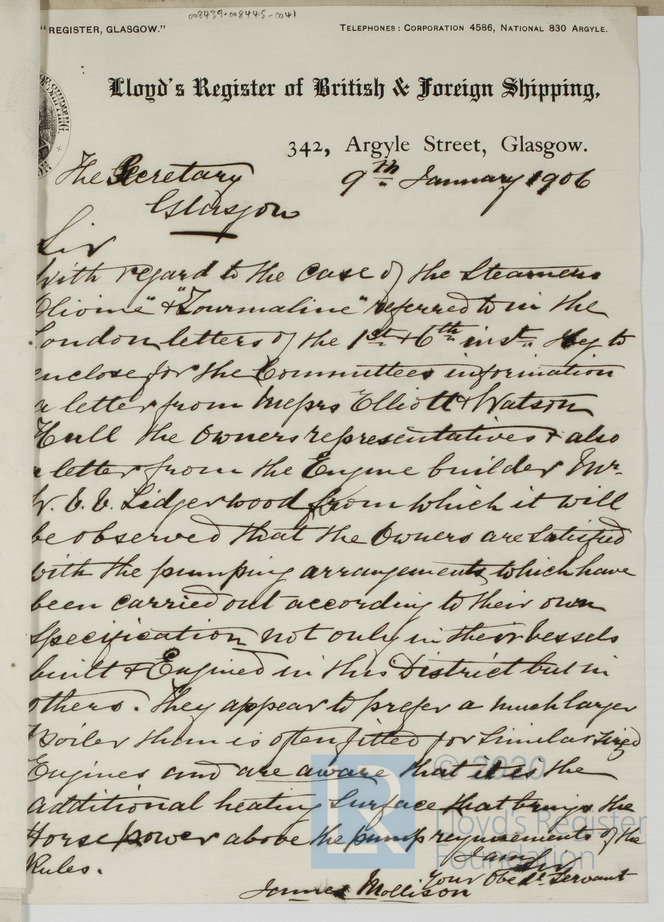 008439-008445-0041
"REGISTER, GLASGOW."
TELEPHONES: CORPORATION 4586, NATIONAL 830 ARGYLE.
Lloyd's Register of British & Foreign Shipping,
342, Argyle Street, Glasgow.
The Secretary 9th January 1906
Glasgow
Sir
With regard to the case of the Steamers
Olivine" & "Tourmaline" referred to in the
London letters of the 1st & 6th inst. I beg to
enclose for the Committees information
a letter from Messrs Elliott & Watson
Hull the Owners representatives & also
a letter from the Engine builder Mr.
W. V. V. Lidgerwood from which it will
be observed that the Owners are satisfied
with the pumping arrangements which have
been carried out according to their own
specification not only in their vessels
built & Engined in this District but in
others. They appear to prefer a much larger
Boiler than is often fitted for similar sized
Engines and are aware that it is the
additional heating surface that brings the
Horse power above the pump requirements of the
Rules.
I am Sir
Your Obedt. Servant
James Mollison
© 2020
Lloyd's Register
Foundation